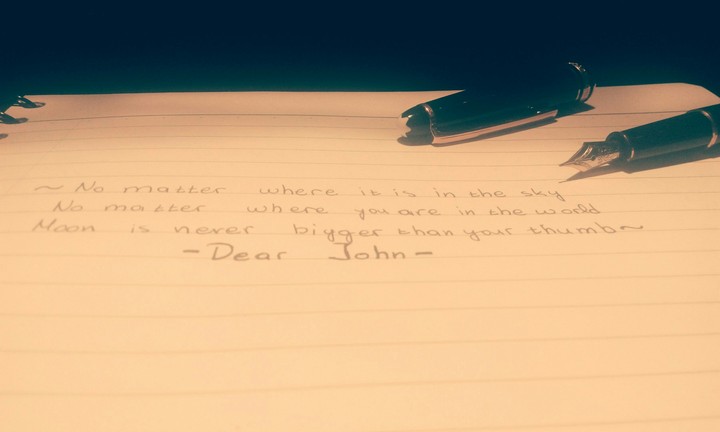 ~ No matter where it is in the sky
No matter where you are in the world
Moon is never bigger than your thumb ~
- Dear John -